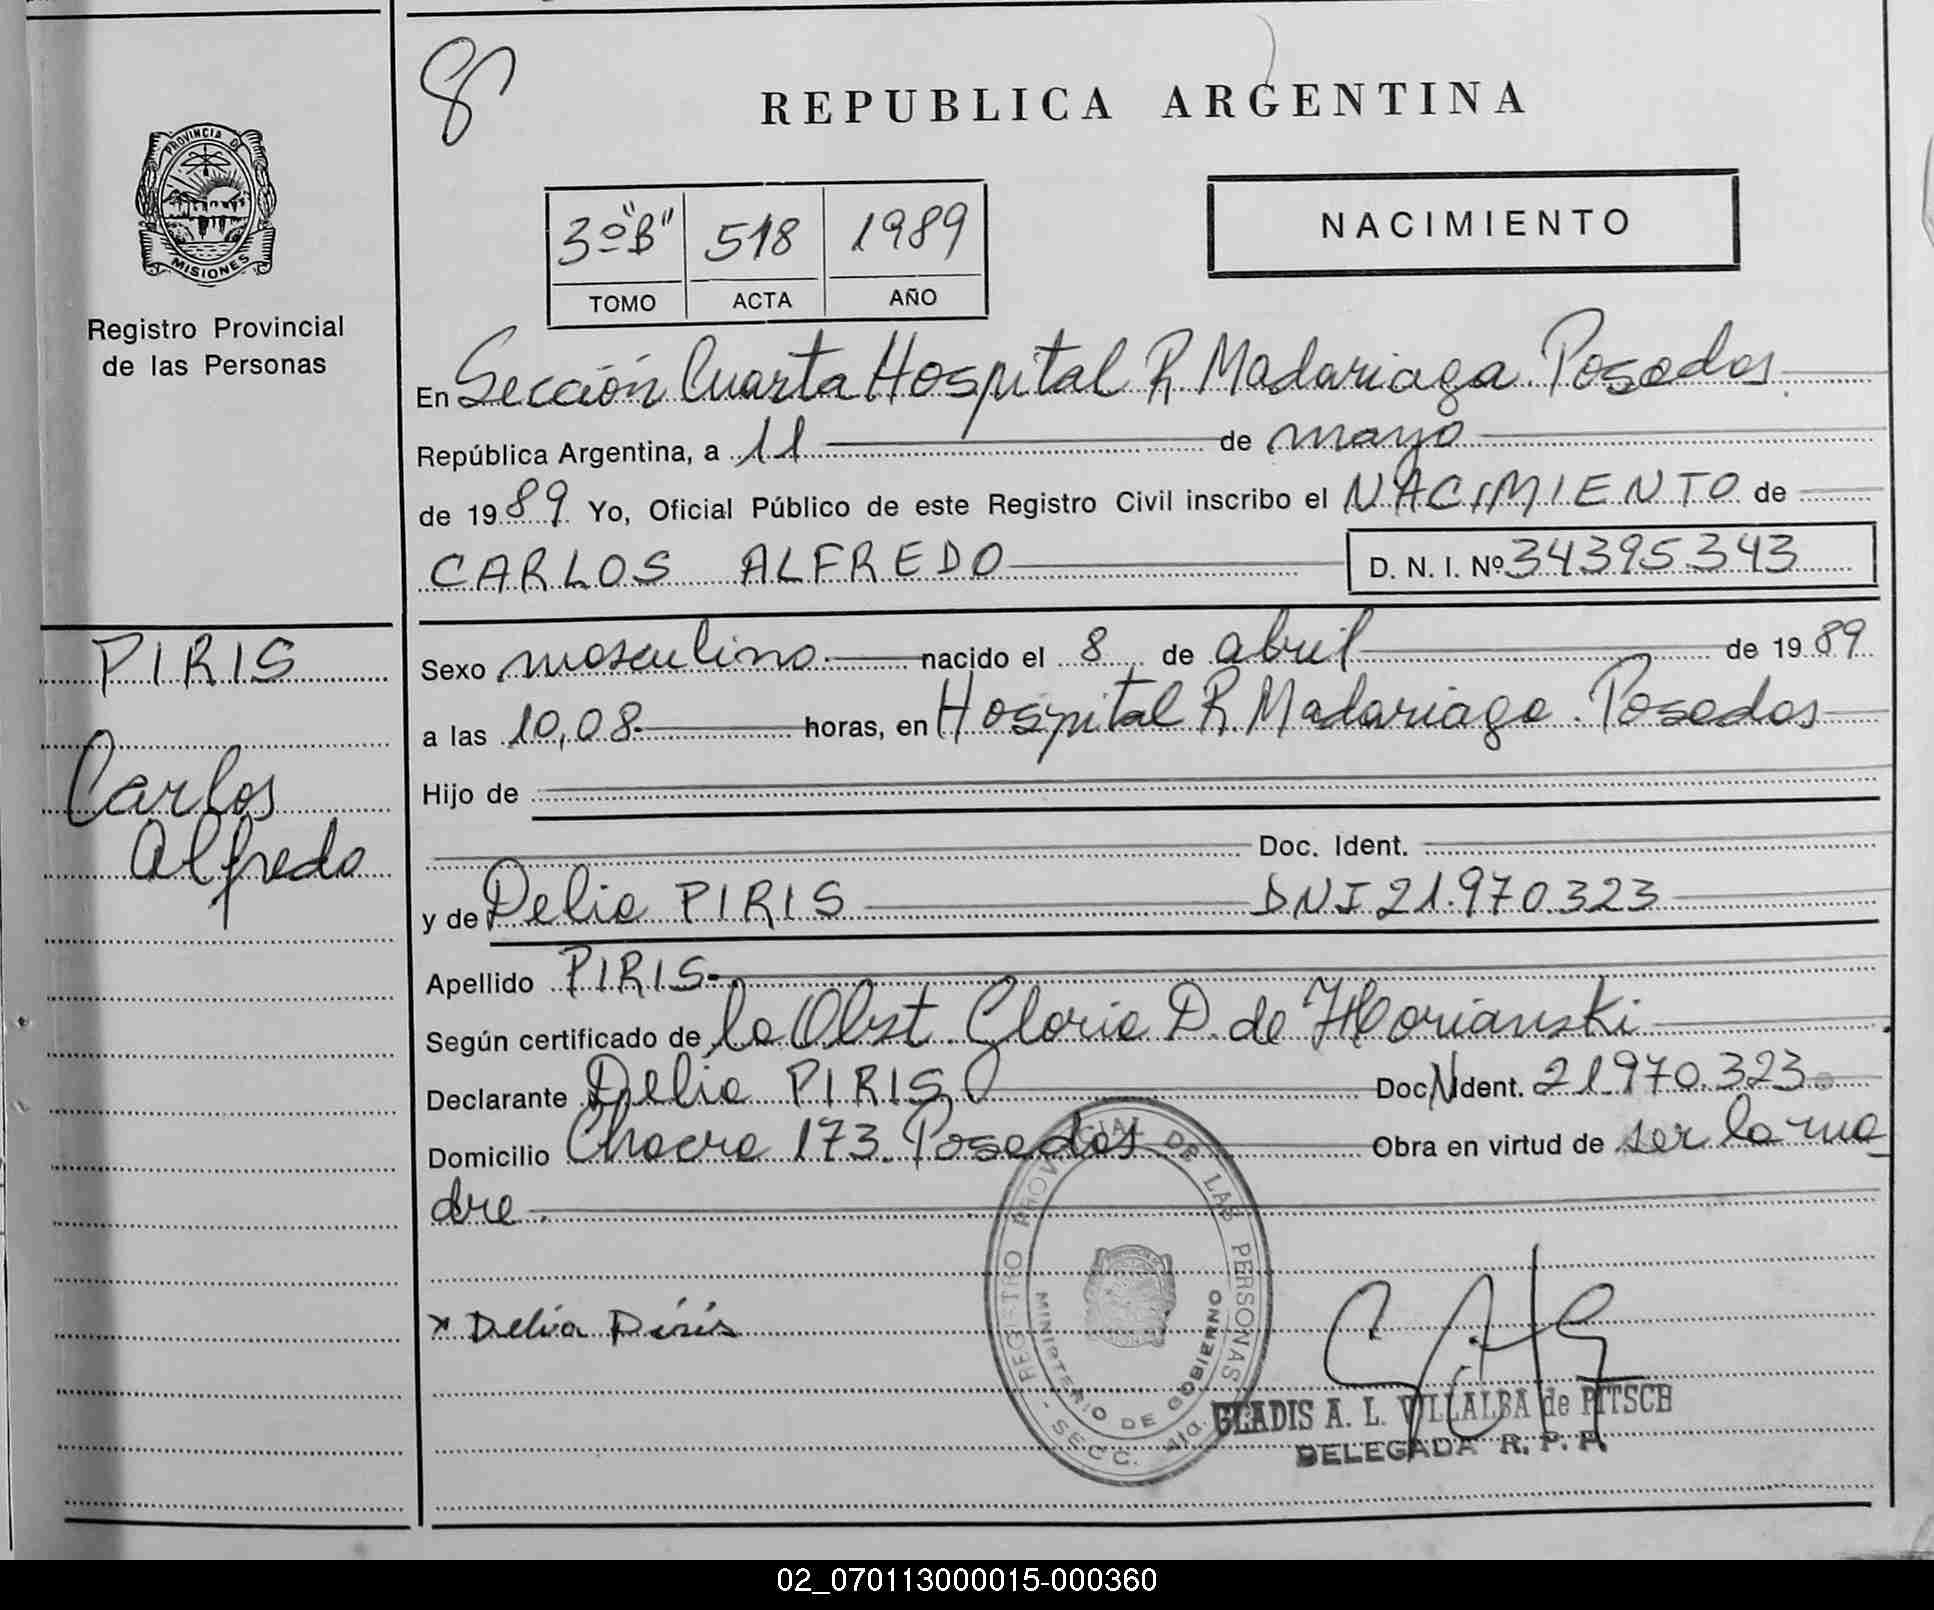 8
REPUBLICA ARGENTINA
PROVINCIA DE
MISIONES
Registro Provincial
de las Personas
3º "B" 518 1989
TOMO ACTA AÑO
NACIMIENTO
En Sección Cuarta Hospital R. Madariaga. Posadas
República Argentina, a 11 de mayo
de 1989 Yo, Oficial Público de este Registro Civil inscribo el NACIMIENTO de
CARLOS ALFREDO D. N. I. Nº 34395343
PIRIS
Carlos
Alfredo
Sexo masculino nacido el 8 de abril de 1989
a las 10,08 horas, en Hospital R. Madariaga. Posadas
Hijo de
Doc. Ident.
y de Delia PIRIS DNI 21.970.323
Apellido PIRIS
Según certificado de la Obst. Gloria D. de
Declarante Delia PIRIS Doc. Ident. 21.970.323
Domicilio Chacra 173. Posadas Obra en virtud de ser la ma
dre.
x Delia Piris
REGISTRO PROVINCIAL DE LAS PERSONAS
MINISTERIO DE GOBIERNO
- SECC. 4ta. -
GLADIS A. L. VILLALBA de PITSCH
DELEGADA R. P. P.
02_070113000015-000360